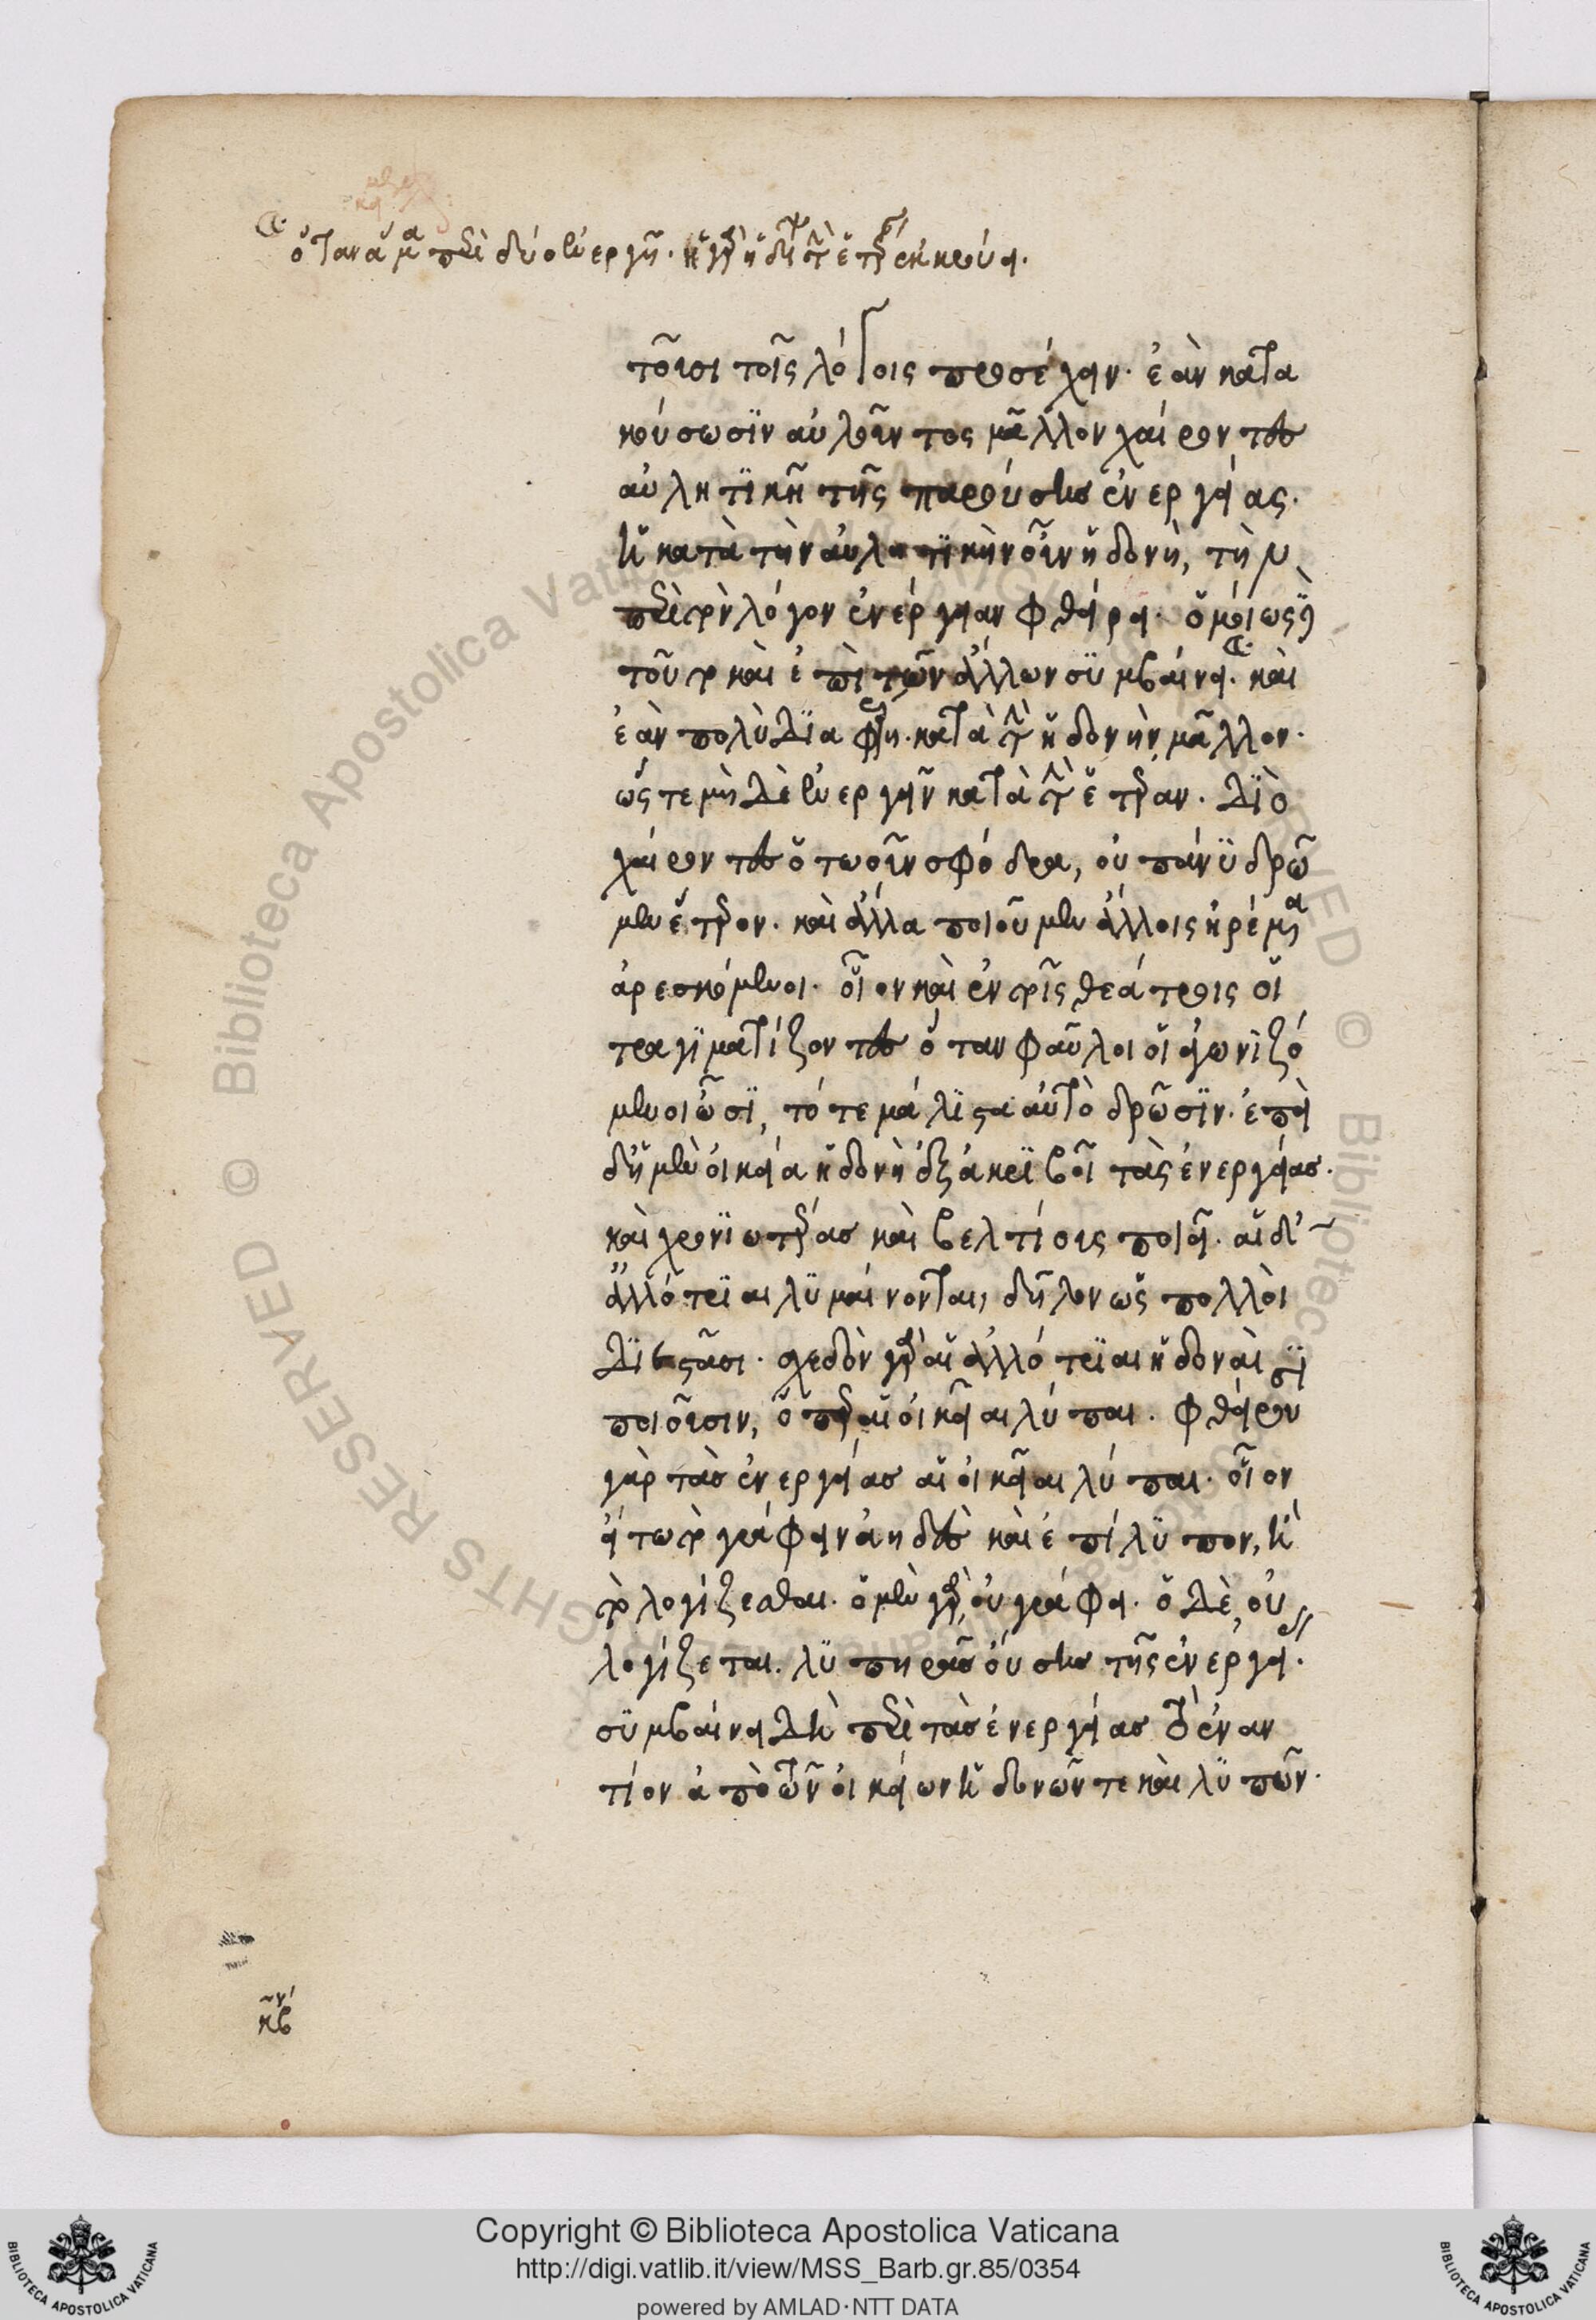 ὅταν ἅμα περὶ δύο ἐνεργῇ· ἡ γὰρ ἡδίων τὴν ἑτέραν ἐκκρούει·
τοῦσι τοῖς λόγοις προσέχειν· ἐὰν κατα
κούσωσιν αὐλοῦντος μᾶλλον χαίροντες
αὐλητικῇ τῆς παρούσης ἐνεργείας·
ἡ κατὰ τὴν αὐλητικὴν οὖν ἡδονὴ, τὴν
περὶ τὸν λόγον ἐνέργειαν φθείρει· ὁμοίως δὲ
τοῦτο καὶ ἐπὶ τῶν ἄλλων συμβαίνει· καὶ
ἐὰν πολὺ διαφέρῃ· κατὰ τὴν ἡδονὴν, μᾶλλον·
ὥστε μὴ δὲ ἐνεργεῖν κατὰ τὴν ἑτέραν· διὸ
χαίροντες ὁτωοῦν σφόδρα, οὐ πάνυ δρῶ
μεν ἕτερον· καὶ ἄλλα ποιοῦμεν ἄλλοις ἠρέμα
ἀρεσκόμενοι· οἷον καὶ ἐν τοῖς θεάτροις οἱ
τραγηματίζοντες ὅταν φαῦλοι οἱ ἀγωνιζό
μενοι ὦσι, τότε μάλιστα αὐτὸ δρῶσιν· ἐπεὶ
δὴ μὲν οἰκεία ἡδονὴ ἐξακριβοῖ τὰς ἐνεργείας·
καὶ χρονιωτέρας καὶ βελτίους ποιεῖ· αἱ δ'
ἀλλότριαι λυμαίνονται, δῆλον ὡς πολλοὶ
διεστᾶσι· σχεδὸν γὰρ αἱ ἀλλότριαι ἡδοναὶ
ποιοῦσιν, ὅπερ αἱ οἰκεῖαι λύπαι· φθείρου
γὰρ τὰς ἐνεργείας αἱ οἰκεῖαι λύπαι· οἷον
εἴ τω τὸ γράφειν ἀηδὲς καὶ ἐπίλυπον, ἢ
τὸ λογίζεσθαι· ὁ μὲν γὰρ, οὐ γράφει· ὁ δὲ, οὐ
λογίζεται· λυπηρᾶς οὔσης τῆς ἐνεργείας·
συμβαίνει δὴ περὶ τὰς ἐνεργείας τὸ ἐναν
τίον ἀπὸ τῶν οἰκείων ἡδονῶν τε καὶ λυπῶν·
Copyright © Biblioteca Apostolica Vaticana
http://digi.vatlib.it/view/MSS_Barb.gr.85/0354
powered by AMLAD·NTT DATA